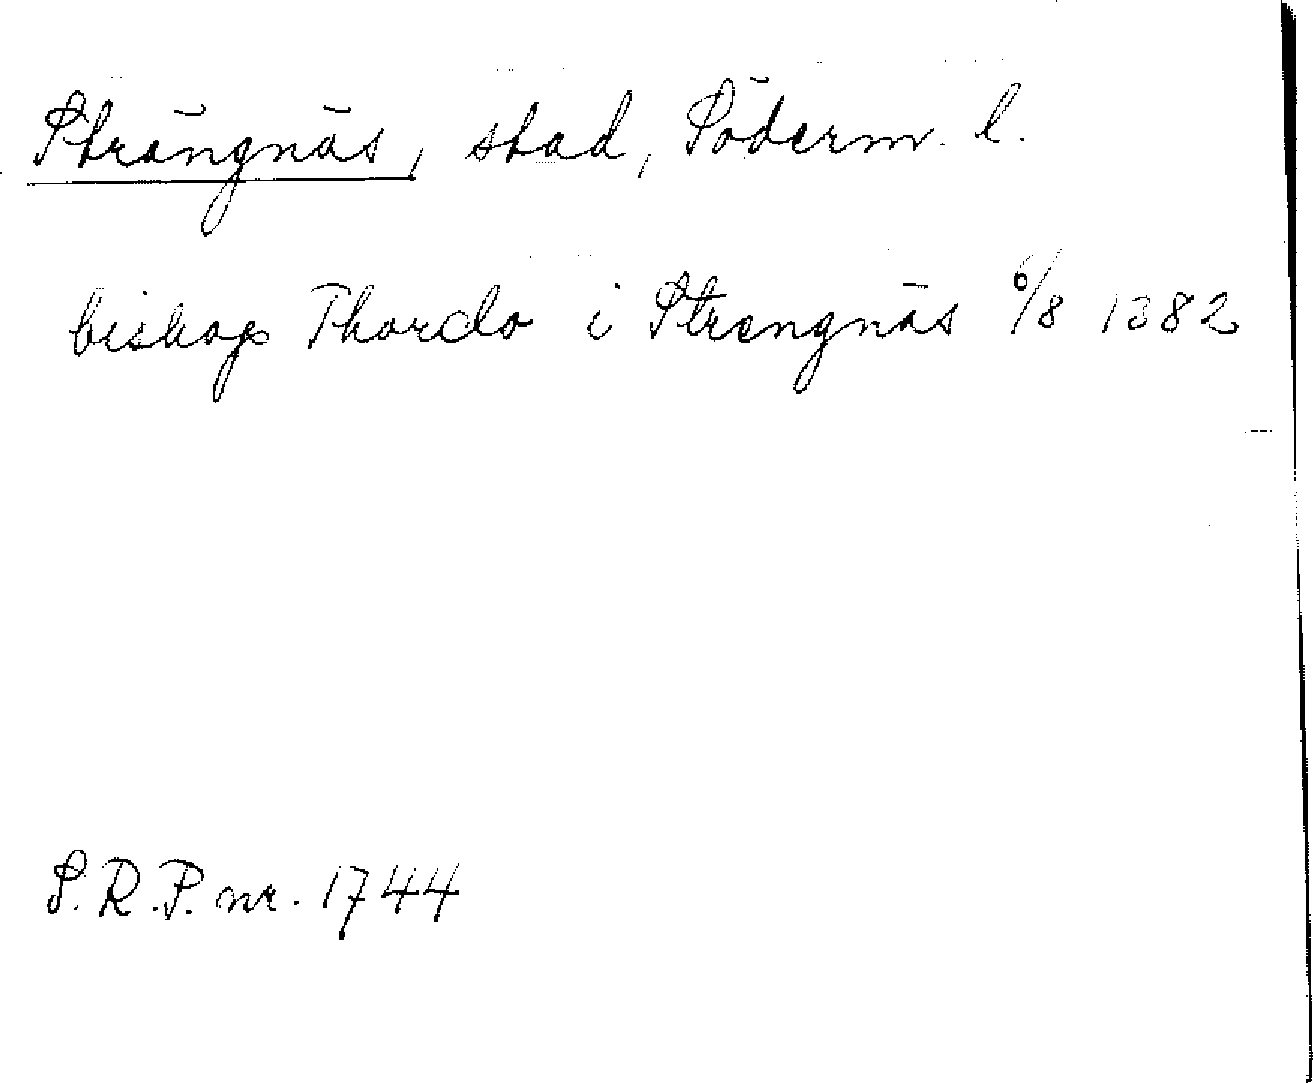 Strängnäs, stad, Söderm. l.
biskop Thordo i Strengnäs 6/8 1382
S.R.P. nr. 1744